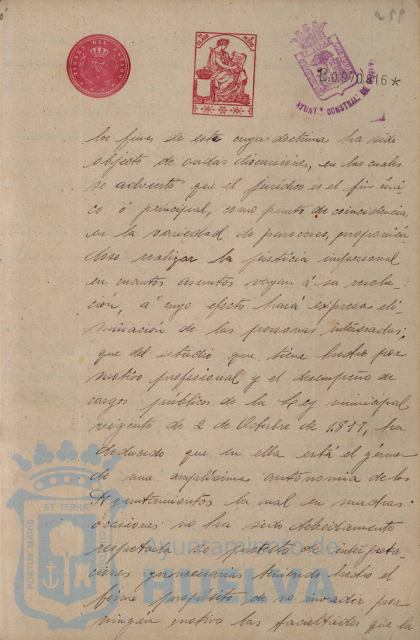 TIMBRE DEL ESTADO
B.0.970.816*
AYUNT.º CONSTNAL. DE
los fines de este cuya doctrina ha sido
objecto de ondas discusiones, en las cuales
se advierte que el jurídico es el fin úni
co ó principal, como punto de coincidencia
en la variedad de pareceres, proponién
dose realizar la justicia impersonal
en cuantos asuntos vayan á su resolu-
ción, á cuyo efecto hará expresa eli
minación de las personas interesadas;
que del estudio que tiene hecho por
motivo profesional y el desempeño de
cargos públicos de la Ley municipal
vigente de 2 de Octubre de 1877, ha
deducido que en ella está el germen
de una amplísima autonomía de los
Ayuntamientos la cual en muchas
ocasiones no ha sido debidamente
respetada so pretesto de interpreta
ciones necesarias teniendo hecho el
firme propósito de no invadir por
ningún motivo las facultades que la
PORTUS MARIS ET TERRAE
Ayuntamiento de
HUELVA